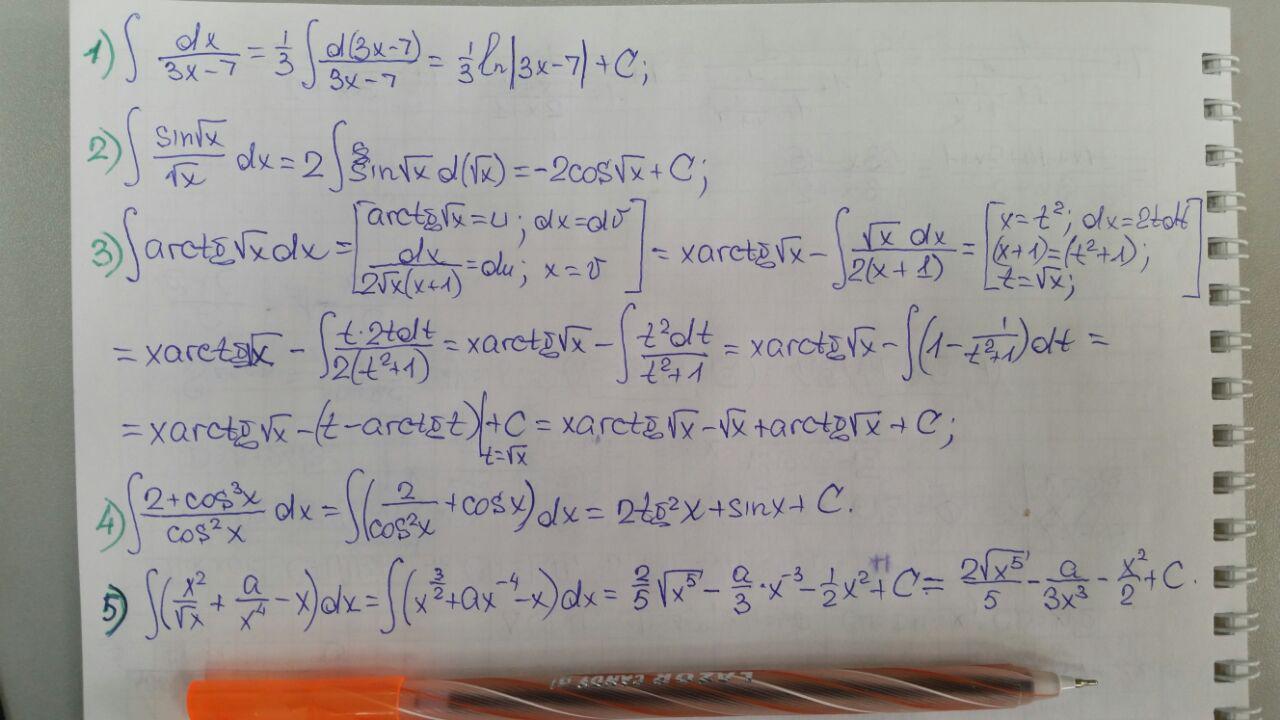 1) ∫ dx/(3x-7) = 1/3 ∫ d(3x-7)/(3x-7) = 1/3 ln|3x-7| + C;
2) ∫ sin√x/√x dx = 2 ∫ sin√x d(√x) = -2cos√x + C;
3) ∫ arctg√x dx = [arctg√x = u; dx = dv; dx/(2√x(x+1)) = du; x = v] = x arctg√x - ∫ √x dx/(2(x+1)) = [x = t²; dx = 2tdt; (x+1) = (t²+1); t = √x;]
= x arctg√x - ∫ t·2tdt/(2(t²+1)) = x arctg√x - ∫ t²dt/(t²+1) = x arctg√x - ∫(1 - 1/(t²+1))dt =
= x arctg√x - (t - arctg t)|t=√x + C = x arctg√x - √x + arctg√x + C;
4) ∫ (2+cos³x)/cos²x dx = ∫(2/cos²x + cos x) dx = 2tg²x + sin x + C.
5) ∫(x²/√x + a/x⁴ - x)dx = ∫(x^(3/2) + ax⁻⁴ - x)dx = 2/5 √x⁵ - a/3 · x⁻³ - 1/2 x² + C = 2√x⁵/5 - a/(3x³) - x²/2 + C.